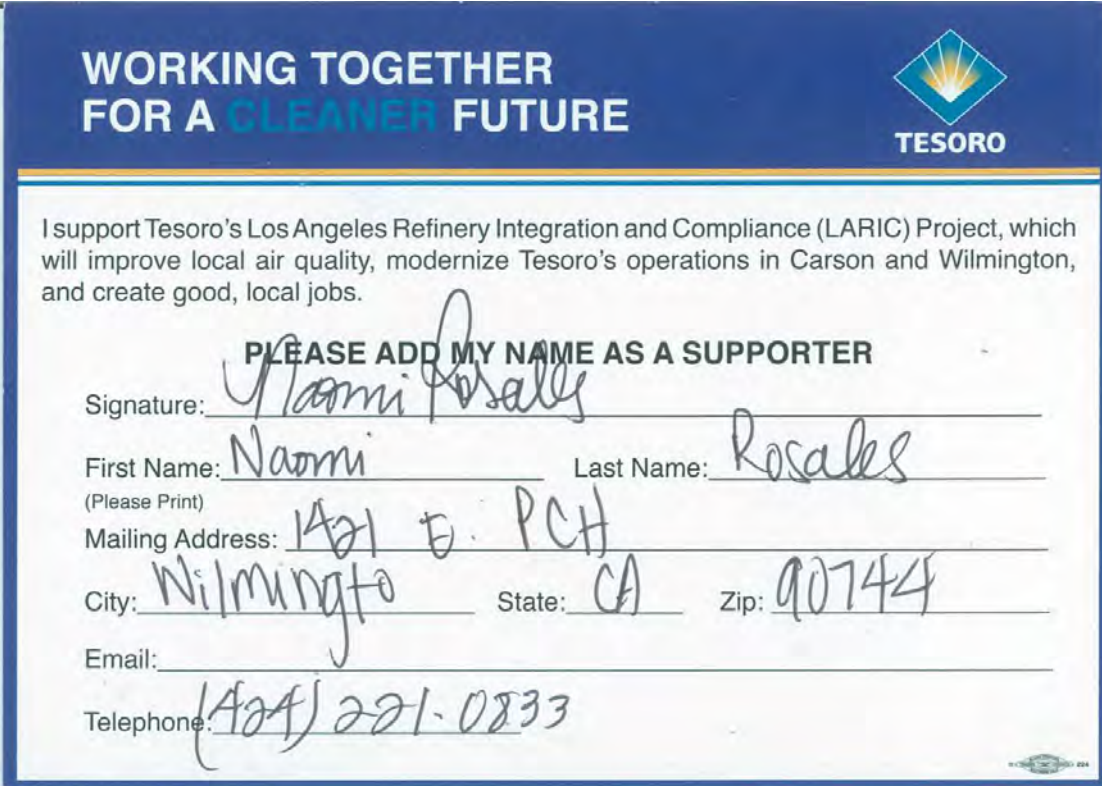 WORKING TOGETHER
FOR A CLEANER FUTURE
TESORO
I support Tesoro's Los Angeles Refinery Integration and Compliance (LARIC) Project, which
will improve local air quality, modernize Tesoro's operations in Carson and Wilmington,
and create good, local jobs.
PLEASE ADD MY NAME AS A SUPPORTER
Signature: Naomi Rosales
First Name: Naomi Last Name: Rosales
(Please Print)
Mailing Address: 1421 E. PCH
City: Wilmingto State: CA Zip: 90744
Email:
Telephone: (424) 221-0833